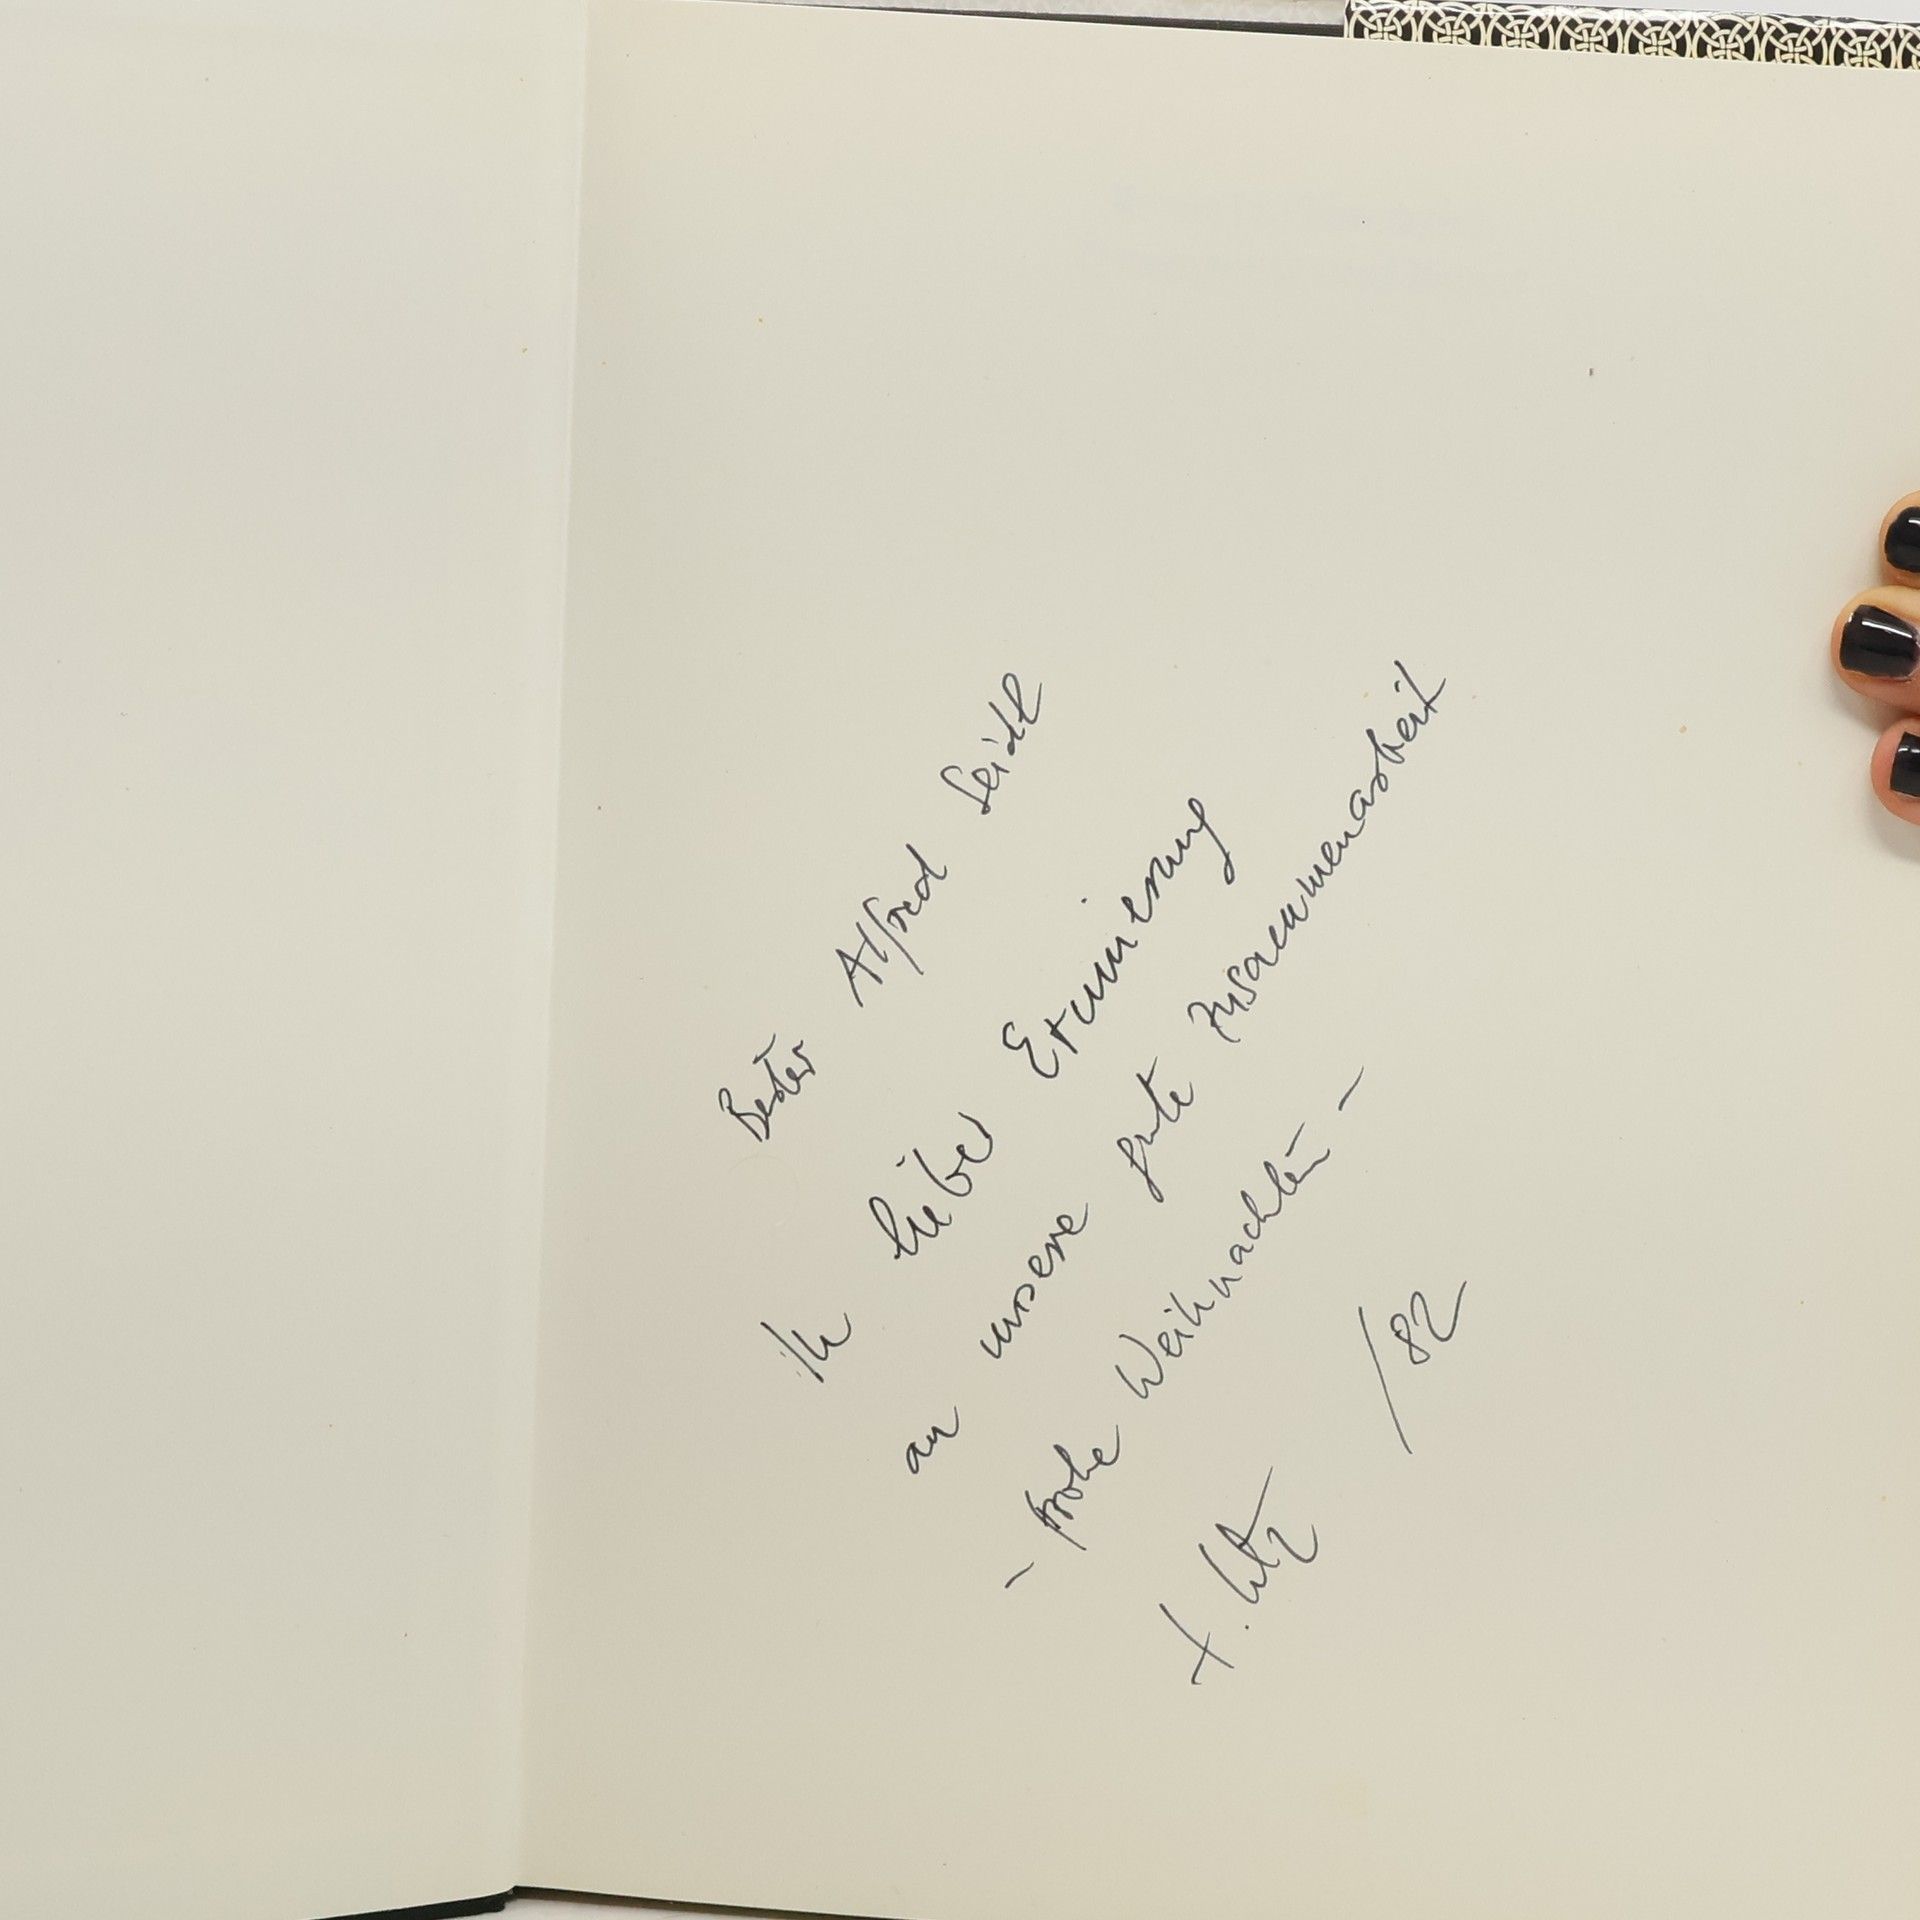 Bester Alfred Seidl
in lieber Erinnerung
an unsere gute Zusammenarbeit
- frohe Weihnachten -
/82